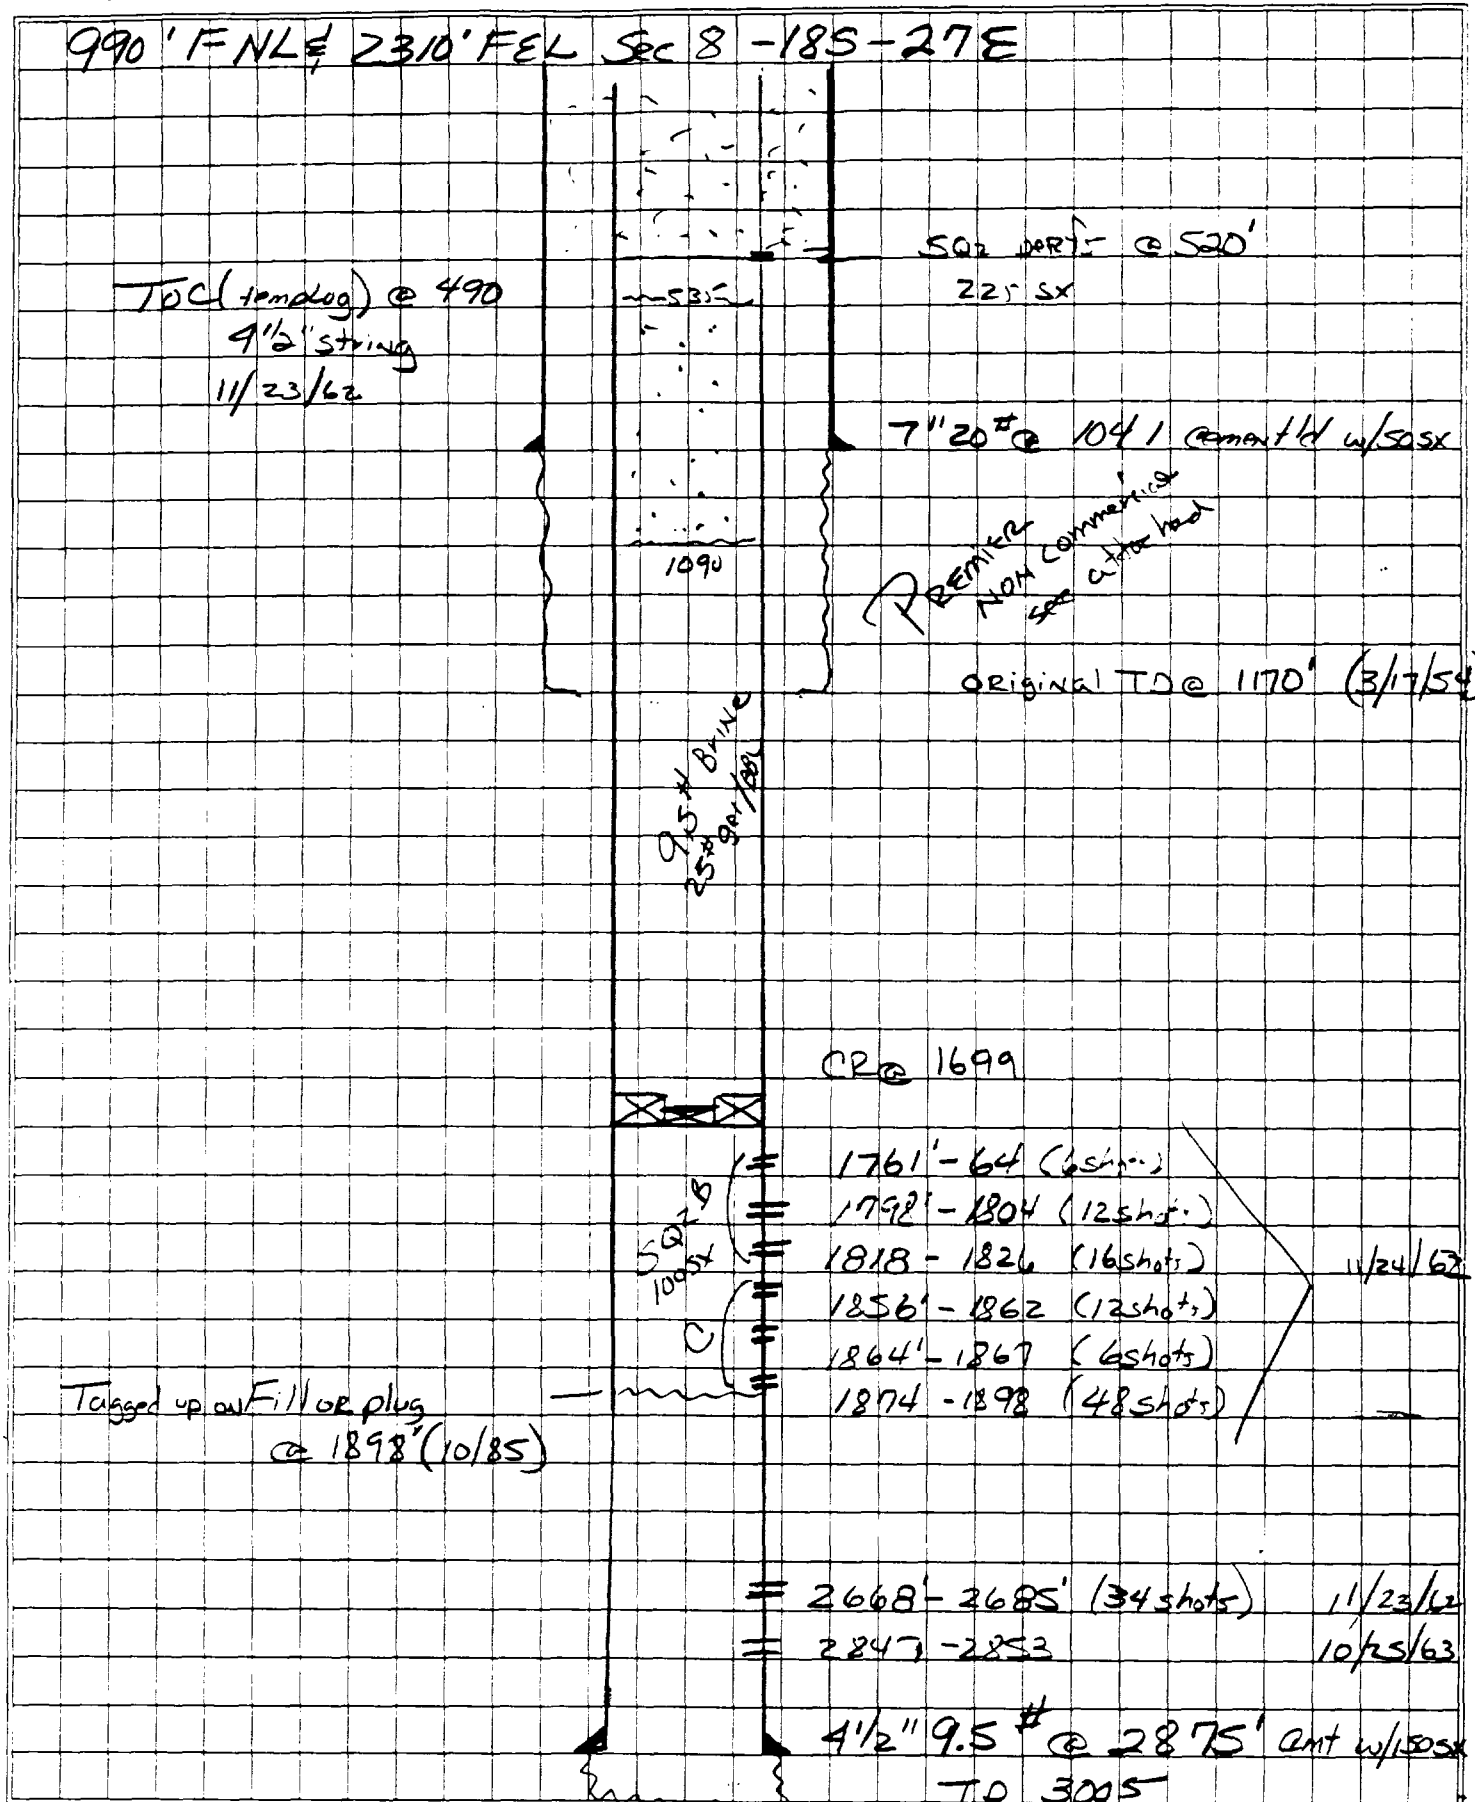 990' FNL & 2310' FEL Sec 8 -18S-27E
SQz perfs @ 520'
225 sx
TOC (temp log) @ 490
4 1/2" string
11/23/62
535
7" 20# @ 1041 cement'd w/50sx
1090
PREMIER
NON Commerical
see attached
ORiginal TD @ 1170' (3/17/54)
9.5# Brine
25# gel/BBL
CR @ 1699
1761'-64 (6shots)
1798'-1804 (12shots)
1818 - 1826 (16shots) 11/24/62
1856'-1862 (12shots)
1864'-1867 (6shots)
1874 -1898 (48shots)
SQZ B
100sx
C
Tagged up on Fill or plug
@ 1898' (10/85)
2668'-2685' (34 shots) 11/23/62
2847-2853 10/25/63
4 1/2" 9.5# @ 2875' Cmt w/150sx
TD 3005